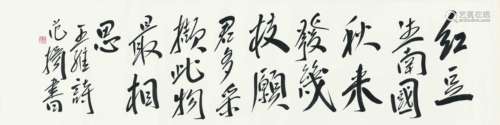 紅豆
生南國
秋来
發幾
枝願
君多采
擷此物
最相
思
王維詩
范書